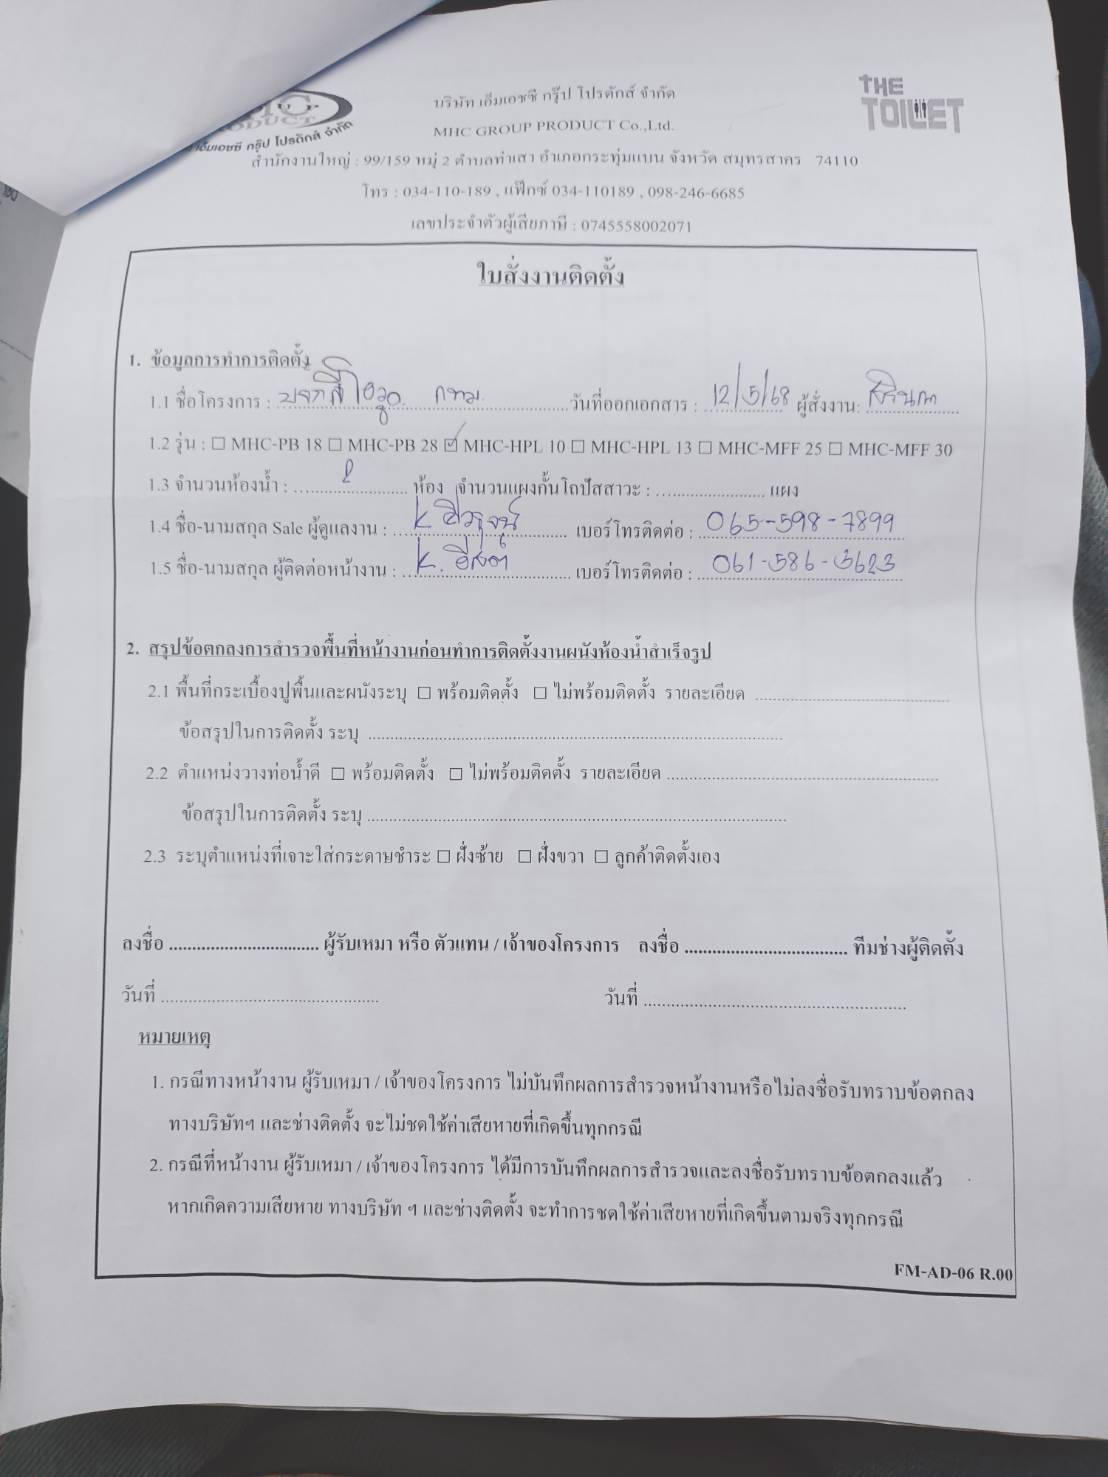 บริษัท เอ็มเอชซี กรุ๊ป โปรดักส์ จำกัด
THE TOILET
MHC GROUP PRODUCT Co.,Ltd.
กรุ๊ป โปรดักส์ จำกัด
สำนักงานใหญ่ : 99/159 หมู่ 2 ตำบลท่าเสา อำเภอกระทุ่มแบน จังหวัด สมุทรสาคร 74110
โทร : 034-110-189 , แฟ็กซ์ 034-110189 , 098-246-6685
เลขประจำตัวผู้เสียภาษี : 0745558002071
ใบสั่งงานติดตั้ง
1. ข้อมูลการทำการติดตั้ง
1.1 ชื่อโครงการ : กทม. วันที่ออกเอกสาร : 12/5/68 ผู้สั่งงาน:
1.2 รุ่น : ☐ MHC-PB 18 ☐ MHC-PB 28 ☑ MHC-HPL 10 ☐ MHC-HPL 13 ☐ MHC-MFF 25 ☐ MHC-MFF 30
1.3 จำนวนห้องน้ำ : ห้อง จำนวนแผงกั้นโถปัสสาวะ : แผง
1.4 ชื่อ-นามสกุล Sale ผู้ดูแลงาน : K. เบอร์โทรติดต่อ : 065-598-7899
1.5 ชื่อ-นามสกุล ผู้ติดต่อหน้างาน : K. เบอร์โทรติดต่อ : 061-586-3623
2. สรุปข้อตกลงการสำรวจพื้นที่หน้างานก่อนทำการติดตั้งงานผนังห้องน้ำสำเร็จรูป
2.1 พื้นที่กระเบื้องปูพื้นและผนังระบุ ☐ พร้อมติดตั้ง ☐ ไม่พร้อมติดตั้ง รายละเอียด
ข้อสรุปในการติดตั้ง ระบุ
2.2 ตำแหน่งวางท่อน้ำดี ☐ พร้อมติดตั้ง ☐ ไม่พร้อมติดตั้ง รายละเอียด
ข้อสรุปในการติดตั้ง ระบุ
2.3 ระบุตำแหน่งที่เจาะใส่กระดาษชำระ ☐ ฝั่งซ้าย ☐ ฝั่งขวา ☐ ลูกค้าติดตั้งเอง
ลงชื่อ ผู้รับเหมา หรือ ตัวแทน / เจ้าของโครงการ ลงชื่อ ทีมช่างผู้ติดตั้ง
วันที่ วันที่
หมายเหตุ
1. กรณีทางหน้างาน ผู้รับเหมา / เจ้าของโครงการ ไม่บันทึกผลการสำรวจหน้างานหรือไม่ลงชื่อรับทราบข้อตกลง
ทางบริษัทฯ และช่างติดตั้ง จะไม่ชดใช้ค่าเสียหายที่เกิดขึ้นทุกกรณี
2. กรณีที่หน้างาน ผู้รับเหมา / เจ้าของโครงการ ได้มีการบันทึกผลการสำรวจและลงชื่อรับทราบข้อตกลงแล้ว
หากเกิดความเสียหาย ทางบริษัท ฯ และช่างติดตั้ง จะทำการชดใช้ค่าเสียหายที่เกิดขึ้นตามจริงทุกกรณี
FM-AD-06 R.00